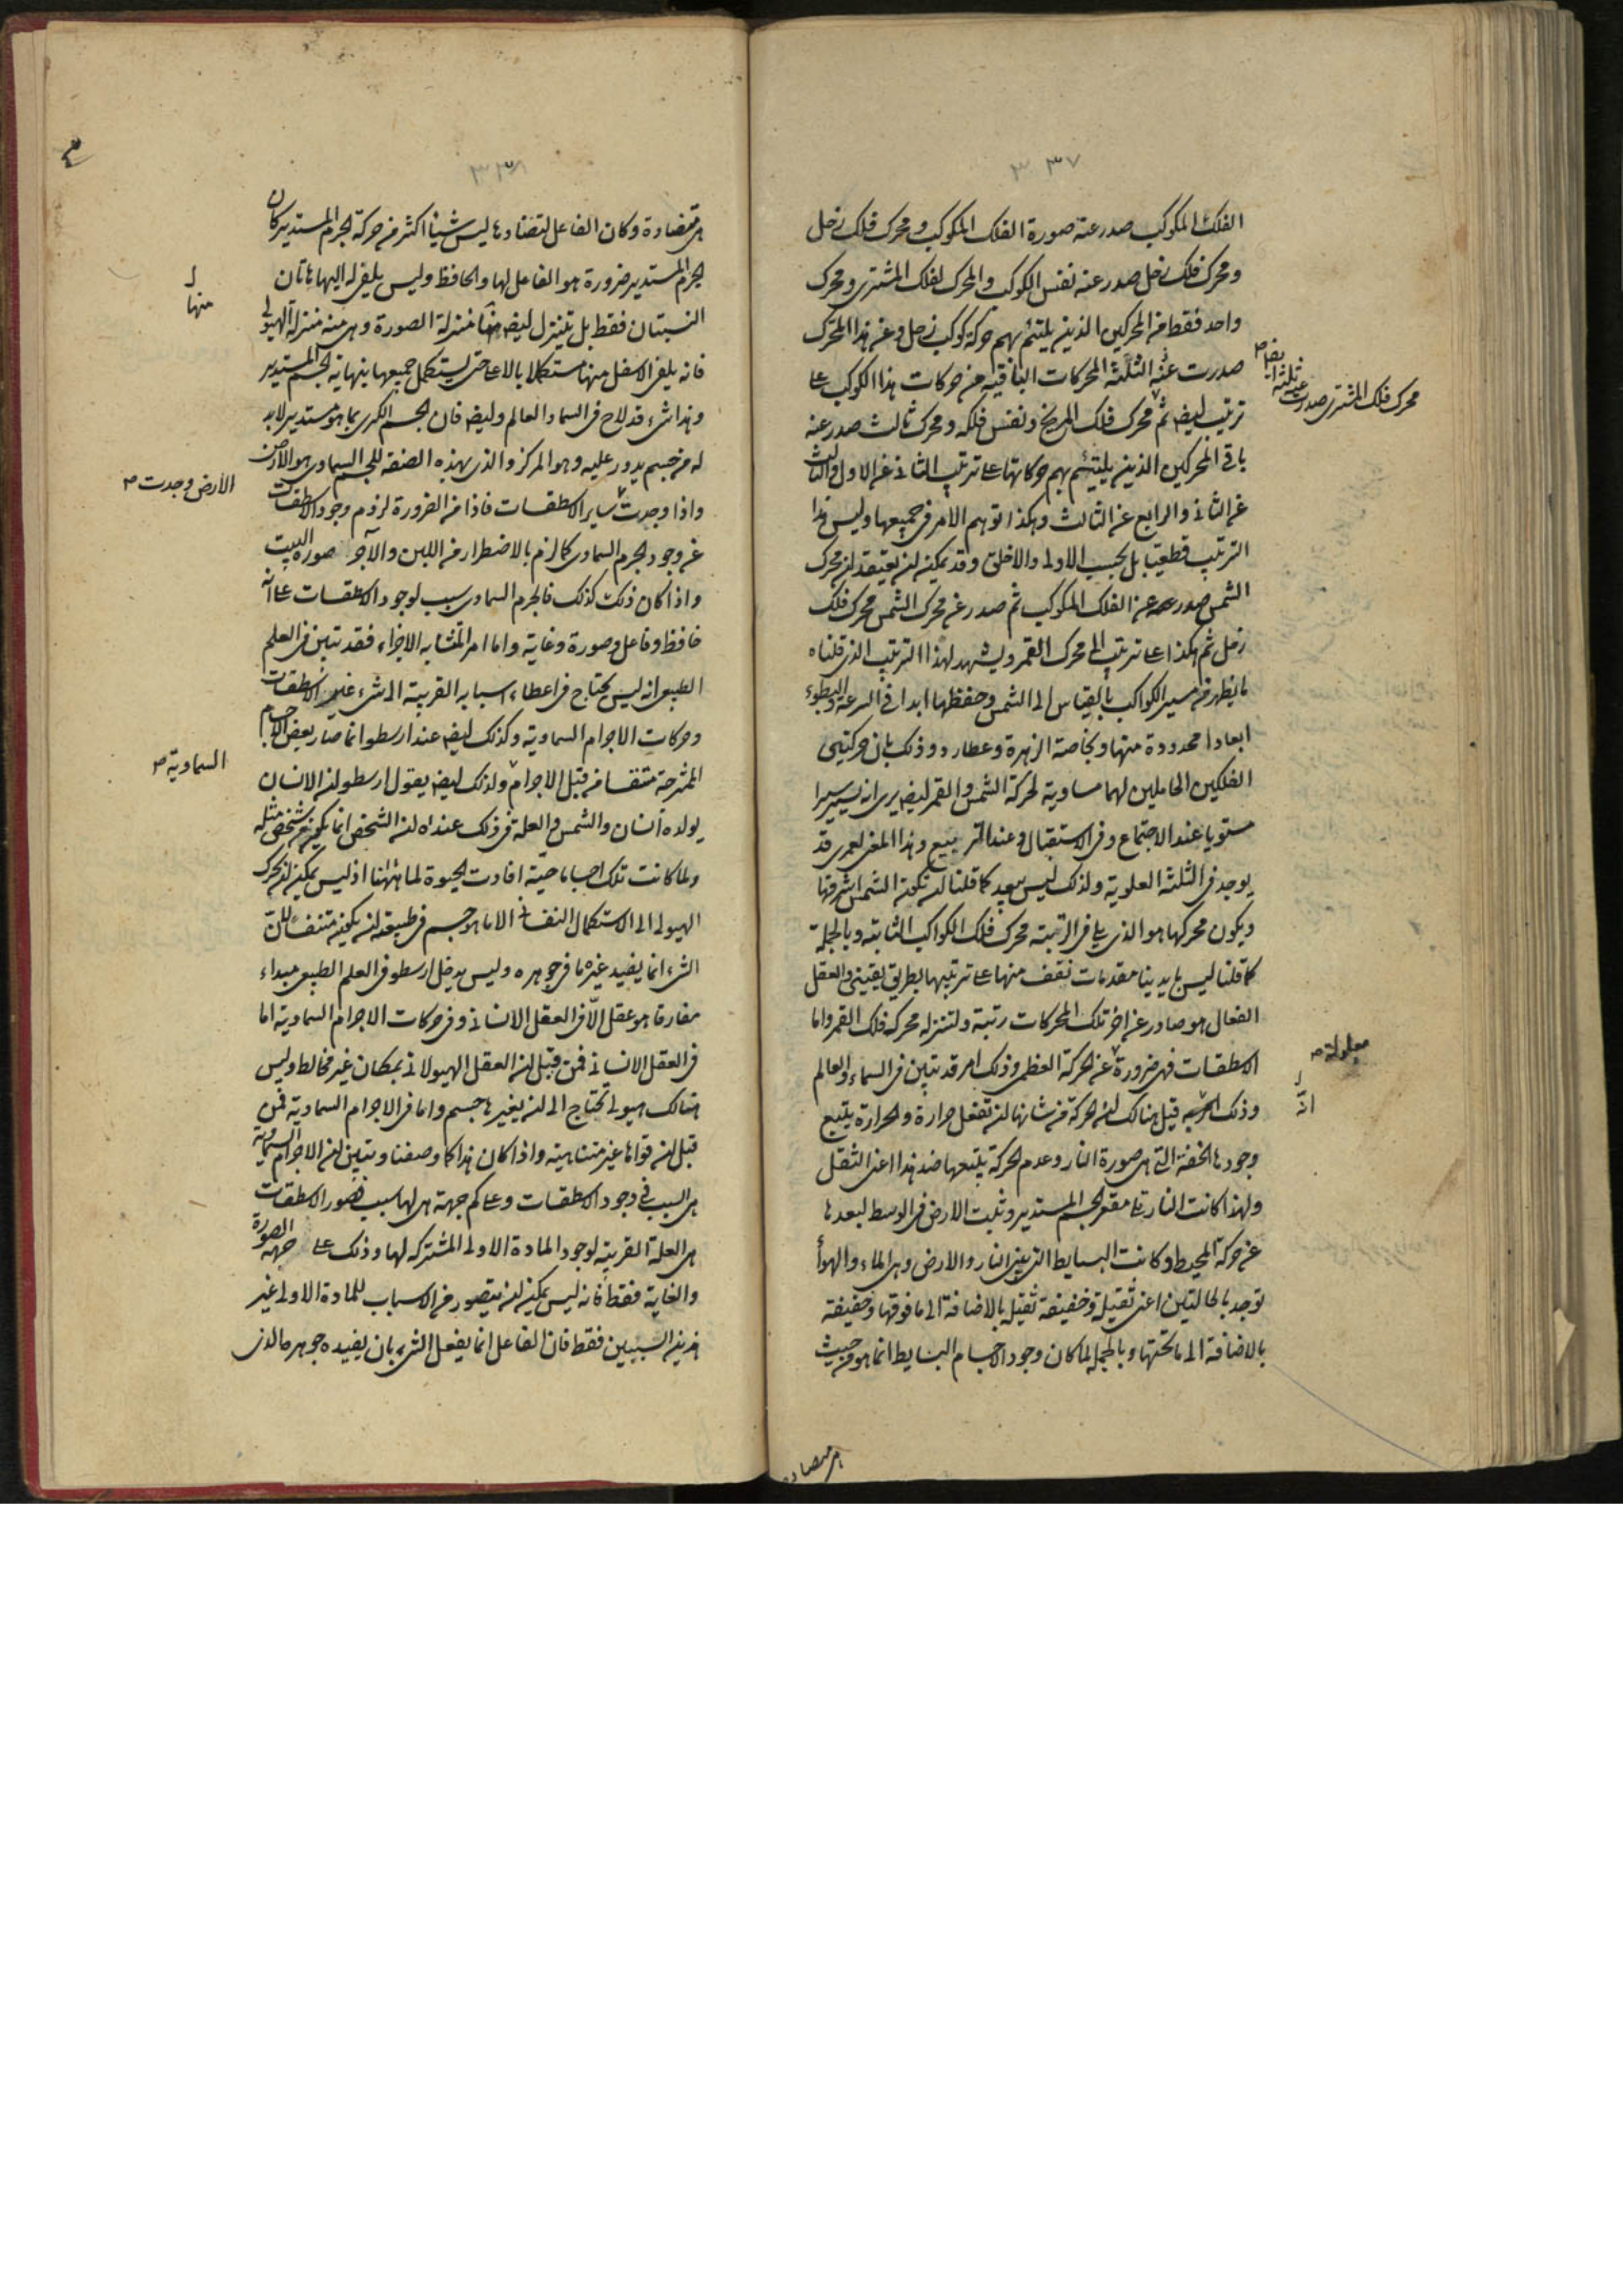 ٣٣٧
الفلك المكوكب صدر عنه صورة الفلك المكوكب ومحرك فلك زحل
ومحرك فلك زحل صدر عنه نفس الكوكب والمحرك لفلك المشترى ومحرك
واحد فقط من المحركين الذين يلتئم بهم حركة كوكب زحل وعن هذا المحرك
صدرت عنه الثلثة المحركات الباقية من حركات هذا الكوكب على
محرك فلك المشترى صدرت عنه ثلثة ايضا صح
ترتيب ايضا ثم محرك فلك المريخ ونفس فلكه ومحرك ثالث صدر عنه
باقى المحركين الذين يلتئم بهم حركاتها على ترتيب الثانى عن الاول والثالث
عن الثانى والرابع عن الثالث وهكذا توهم الامر فى جميعها وليس هذا
الترتيب قطعيا بل بحسب الاولى والاخلق وقد يمكن ان يعتقد ان محرك
الشمس صدر عن الفلك المكوكب ثم صدر عن محرك الشمس محرك فلك
زحل ثم هكذا على ترتيب الى محرك القمر ويشهد لهذا الترتيب الذى قلناه
ما يظهر من مسير الكواكب بالقياس الى الشمس وحفظها ابدا فى السرعة والبطوء
ابعادا محدودة منها وبخاصة الزهرة وعطارد وذلك بان حركتى
الفلكين الحاملين لهما مساوية لحركة الشمس والقمر ايضا يرى انه يسير سيرا
مستويا عند الاجتماع وفى الاستقبال وعند التربيع وهذا المعنى لعمرى قد
يوجد فى الثلثة العلوية ولذلك ليس ببعيد كما قلنا ان تكون الشمس اشرفها
ويكون محركها هو الذى يلى فى الرتبة محرك فلك الكواكب الثابتة وبالجملة
كما قلنا ليس بايدينا مقدمات نقف منها على ترتيبها بطريق يقينى والعقل
الفعال هو صادر عن اخر تلك المحركات رتبة ولننزله محرك فلك القمر واما
الاسطقسات فهى ضرورة عن الحركة العظمى وذلك امر قد تبين فى السماء والعالم
معلولة صح
وذلك قيل هنالك ان الحركة من شانها ان تفعل حرارة والحرارة يتبع
انه
وجودها الخفة التى هى صورة النار وعدم الحركة يتبعها ضد هذا اعنى الثقل
ولهذا كانت النار تلى مقعر الجسم المستدير وثبت الارض فى الوسط لبعدها
عن حركة المحيط وكانت البسايط التى بين النار والارض وهى الماء والهواء
توجد بالحالتين اعنى ثقيلة وخفيفة ثقيلة بالاضافة الى ما فوقها وخفيفة
بالاضافة الى ما تحتها وبالجملة لما كان وجود الاجسام البسايط انما هو من حيث
هى متضادة
٣٣٨
هى متضادة وكان الفاعل لتضادها ليس شيئا اكثر من حركة الجرم المستدير كان
الجرم المستدير ضرورة هو الفاعل لها والحافظ وليس يلفى له اليها هاتان
النسبتان فقط بل يتنزل ايضا منها منزلة الصورة وهى منه منزلة الهيولى
منها
فانه يلفى الاسفل منها مستكملا بالاعلى حتى يستكمل جميعها بنهاية الجسم المستدير
وهذا شىء قد لاح فى السماء والعالم وايضا فان الجسم الكرى بما هو مستدير لا بد
له من جسم يدور عليه وهو المركز والذى بهذه الصفة للجسم السماوى هو الارض
واذا وجدت ساير الاسطقسات فاذا من الضرورة لزوم وجود الاسطقسات
الارض وجدت صح
عن وجود الجرم السماوى كما لزم بالاضطرار من اللبن والآجر صورة البيت
واذا كان ذلك كذلك فالجرم السماوى سبب لوجود الاسطقسات على انه
حافظ وفاعل وصورة وغاية واما امر المتشابه الاجزاء فقد تبين فى العلم
الطبيعى انه ليس يحتاج فى اعطاء اسبابه القريبة الى شىء غير الاسطقسات
وحركات الاجرام السماوية وكذلك ايضا عند ارسطو انما صار بعض الاجسام
الممتزجة متنفسا من قبل الاجرام ولذلك ايضا يقول ارسطو ان الانسان
السماوية صح
يولده انسان والشمس والعلة فى ذلك عنده ان الشخص انما يكون من شخص مثله
ولما كانت تلك اجساما حية افادت الحيوة لما ههنا اذ ليس يمكن ان يحرك
الهيولى الى الاستكمال النفسانى الا ما هو جسم فى طبيعته ان يكون متنفسا لان
الشىء انما يفيد غيره ما فى جوهره وليس يدخل ارسطو فى العلم الطبيعى مبداء
مفارقا هو عقل الّا فى العقل الانسانى وفى حركات الاجرام السماوية اما
فى العقل الانسانى فمن قبل ان العقل الهيولانى بمكان غير مخالط وليس
هنالك هيولى تحتاج الى ان يغيرها جسم واما فى الاجرام السماوية فمن
قبل ان قواها غير متناهية واذا كان هذا كما وصفنا وتبين ان الاجرام السماوية
هى السبب فى وجود الاسطقسات وعلى كم جهة هى لها سبب فصور الاسطقسات
هى العلة القريبة لوجود المادة الاولى المشتركة لها وذلك على جهة الصورة
والغاية فقط فانه ليس يمكن ان يتصور من الاسباب للمادة الاولى غير
هذين السببين فقط فان الفاعل انما يفعل الشىء بان يفيده جوهره الذى